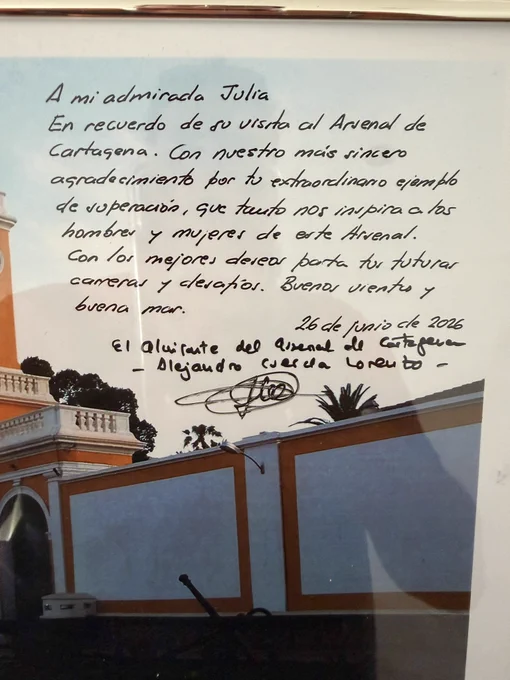 A mi admirada Julia
En recuerdo de su visita al Arsenal de
Cartagena. Con nuestro más sincero
agradecimiento por tu extraordinario ejemplo
de superación, que tanto nos inspira a los
hombres y mujeres de este Arsenal.
Con los mejores deseos parta tus futuras
carreras y desafíos. Buenos vientos y
buena mar.
26 de junio de 2026
El Almirante del Arsenal de Cartagena
- Alejandro Cuerda Lorenzo -